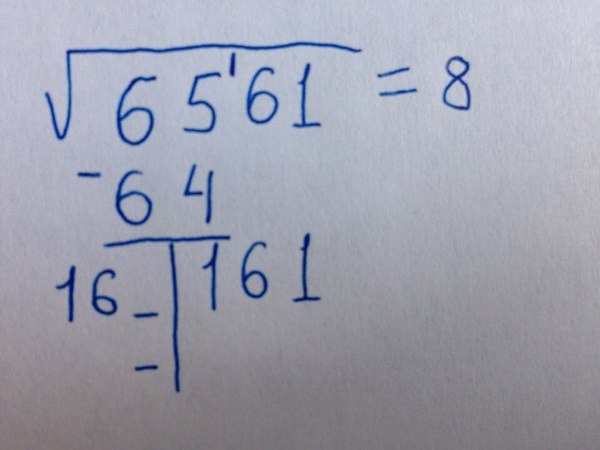 √65'61 = 8
-64
16_ | 161
_